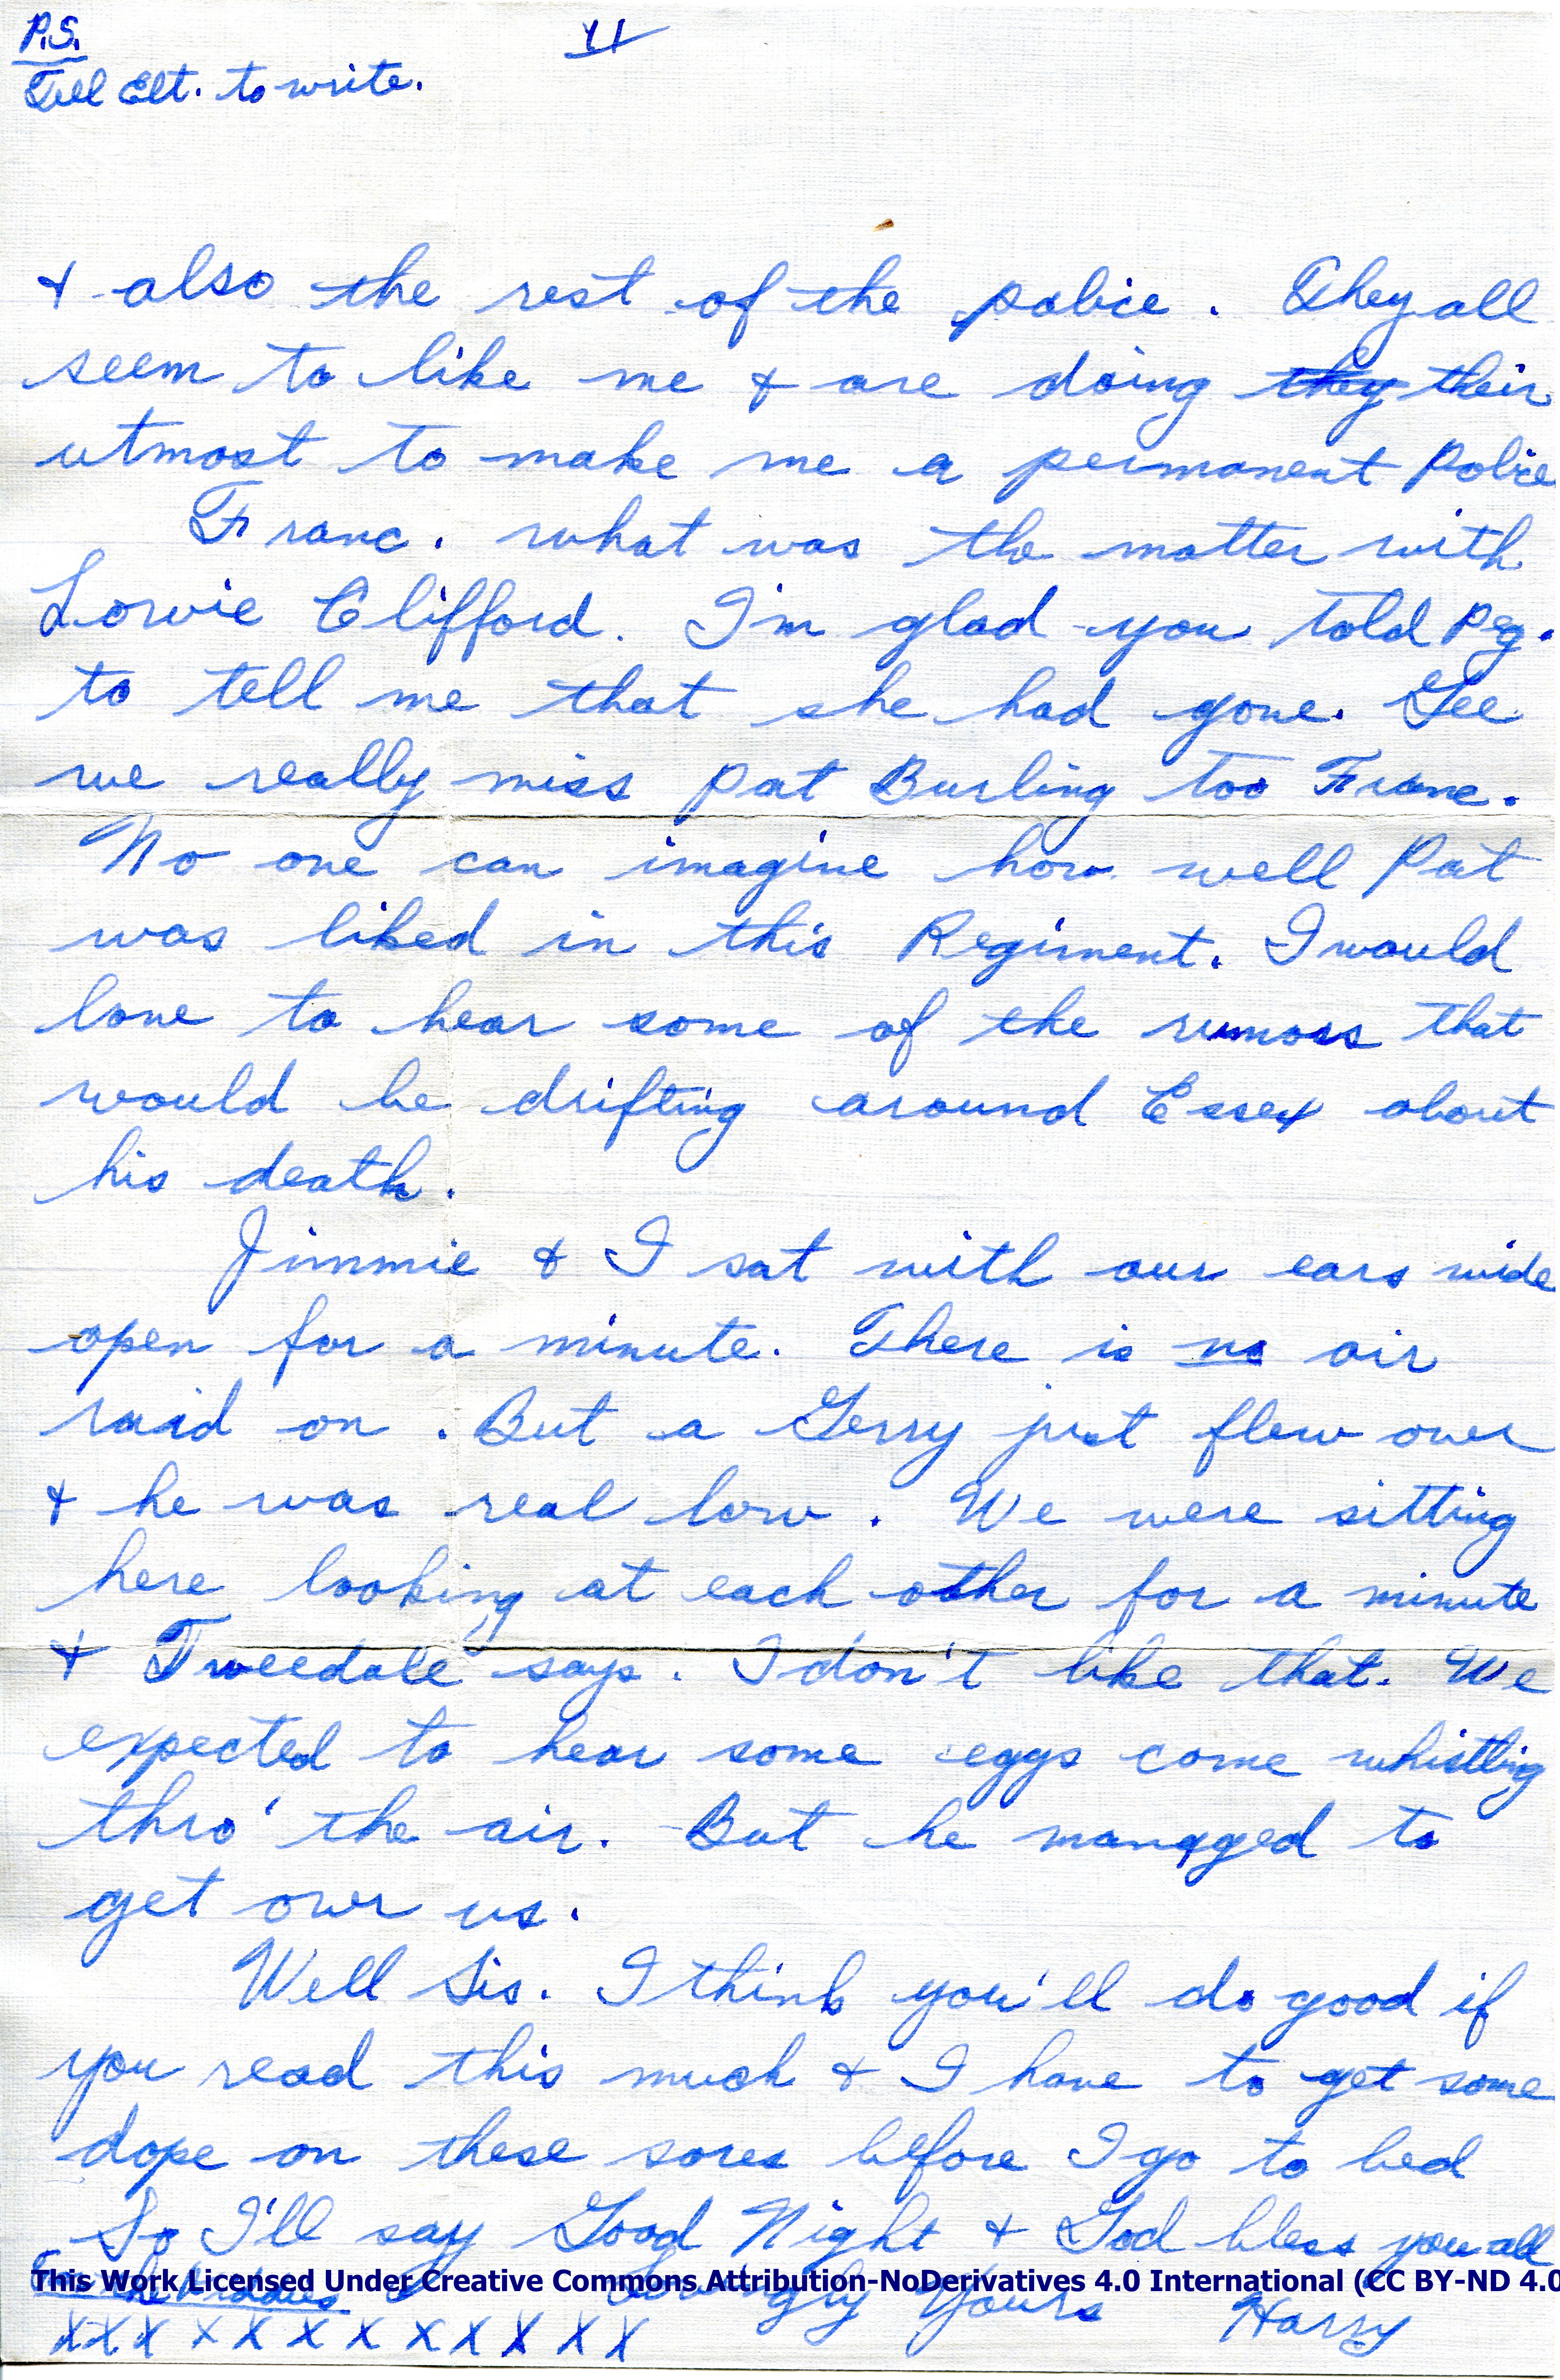 P.S.
Tell Elt. to write.
11
& also the rest of the police. They all
seem to like me & are doing they their
utmost to make me a permanent Police
Franc. what was the matter with
Lorvie Clifford. I'm glad you told Peg.
to tell me that she had gone. Gee
we really miss Pat Burling too Franc.
No one can imagine how well Pat
was liked in this Regiment. I would
love to hear some of the rumors that
would be drifting around Essex about
his death.
Jimmie & I sat with our ears wide
open for a minute. There is no air
raid on. But a Gerry just flew over
& he was real low. We were sitting
here looking at each other for a minute
& Tweedale says. I don't like that. We
expected to hear some eggs come whistling
thro' the air. But he managed to
get over us.
Well Sis. I think you'll do good if
you read this much & I have to get some
dope on these sores before I go to bed
So I'll say Good Night & God bless you all
This Work Licensed Under Creative Commons Attribution-NoDerivatives 4.0 International (CC BY-ND 4.0
For the Kiddies
Lovingly Yours Harry
X X X X X X X X X X X X